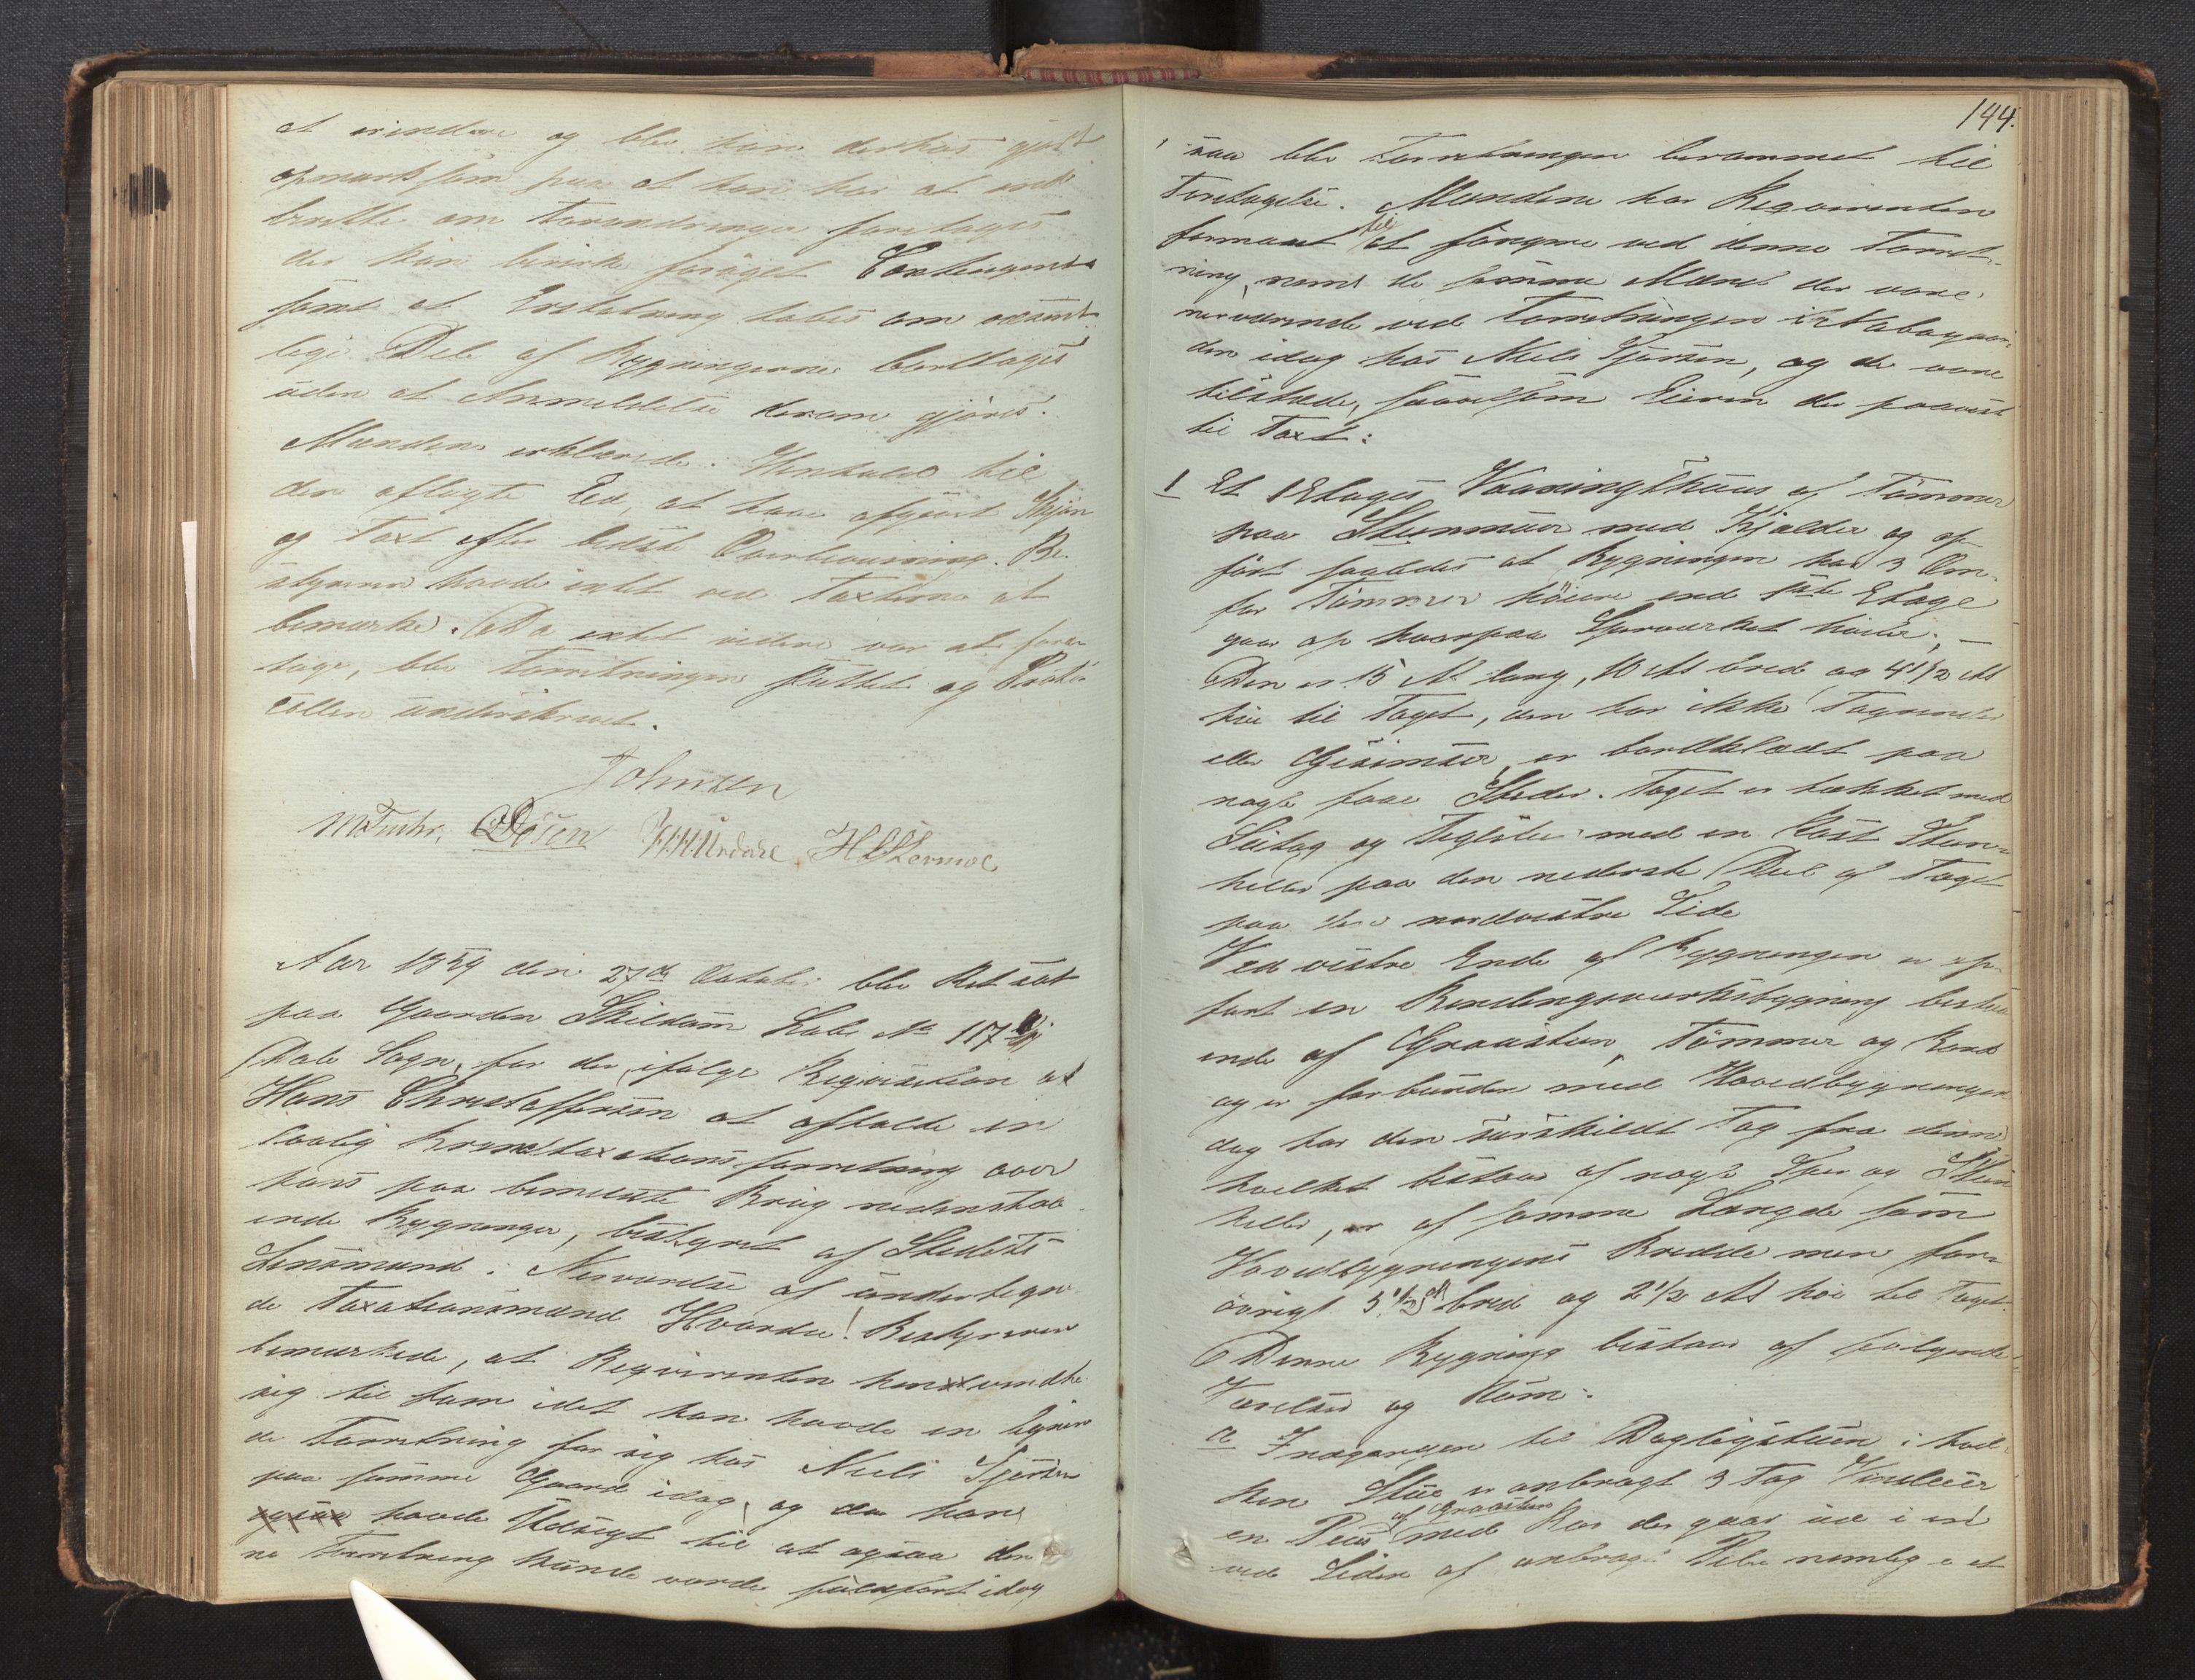 at erindre og blev han derhos gjort
opmærksom paa at han har at ind-
berette om Forandringer foretages
der kan bevirke forøget Contingent
samt at Erstatning tabes om væsent-
lige Dele af Bygningerne borttages
uden at Anmeldelse derom gjøres.
Mændene erklærede i Henhold til
den aflagte Eed, at have afgivet Skjøn
og Taxt efter bedste Overbeviisning. Be-
styreren havde intet ved Taxterne at
bemærke. Da intet videre var at fore-
tage, blev Forretningen sluttet og Proto-
collen underskrevet.
Johnsen
Døsen
Aar 1859 den 27de October blev Ret sat
paa Gaarden Skildam Løbe No 117
Dale Sogn, for der, ifølge Requisition af
Hans Christoffersen at afholde en
lovlig Brandtaxationsforretning over
hans paa bemeldte Brug nedenstaa-
ende Bygninger, bestyret af Stedets
Lensmand i Nærværelse af undertegne-
de Taxationsmænd Hvorda! Bestyreren
bemærkede, at Reqvirenten henvendte
sig til ham idet han havde en lignen-
de Forretning for sig hos Niels Sjursen
paa samme Gaard idag, og da han
ogsaa havde Udsigt til at ogsaa den-
ne Forretning kunde vorde fuldført idag
144.
saa blev Forretningen berammet til
Foretagelse. Mændene har Reqvirenten
formaaet til at fungere ved denne Forret-
ning, nemlig de samme Mænd der vare
nærværende ved Forretningen i Nabogaar-
den idag hos Niels Sjursen, og de vare
tilstede, saavelsom Eieren der paaviste
til Taxt:
1 Et 1 Etages Vaaningshuus af Tømmer
paa Steenmuur med Kjælder og op-
ført saaledes at Bygningen har 3 Om-
far Tømmer høiere end 1ste Etage
gaar op hvorpaa Sperværket hviler. —
Den er 15 Al lang, 10 Al bred og 4 1/2 Al
høi til Taget, den har ikke Tagrender
eller Gesimser, er bordklædt paa
nogle faae Steder. Taget er tækket med
Sutag og Tegelsteen med en Kast Steen-
heller paa den nederste Deel af Taget
paa den nordvestre Side
Ved vestre Ende af Bygningen er op-
ført en Bindingsværksbygning bestaa-
ende af Graasteen, Tømmer og Bord
og er forbunden med Hovedbygningen
dog har den særskildt Tag fra denne
hvilket bestaar af nogle Spær og Steen-
heller, er af samme Længde som
Hovedbygningens Bredde men for-
øvrigt 5 1/2 Al bred og 2 1/2 Al høi til Taget.
Denne Bygning bestaar af følgende
Værelser og Rum:
a Indgangen til Dagligstuen i hvil-
ken Stue er anbragt 3 Fag Vinduer
en Peis af Graasteen med Rør der gaar ud i en
ved Siden af anbragt Pibe nemlig et